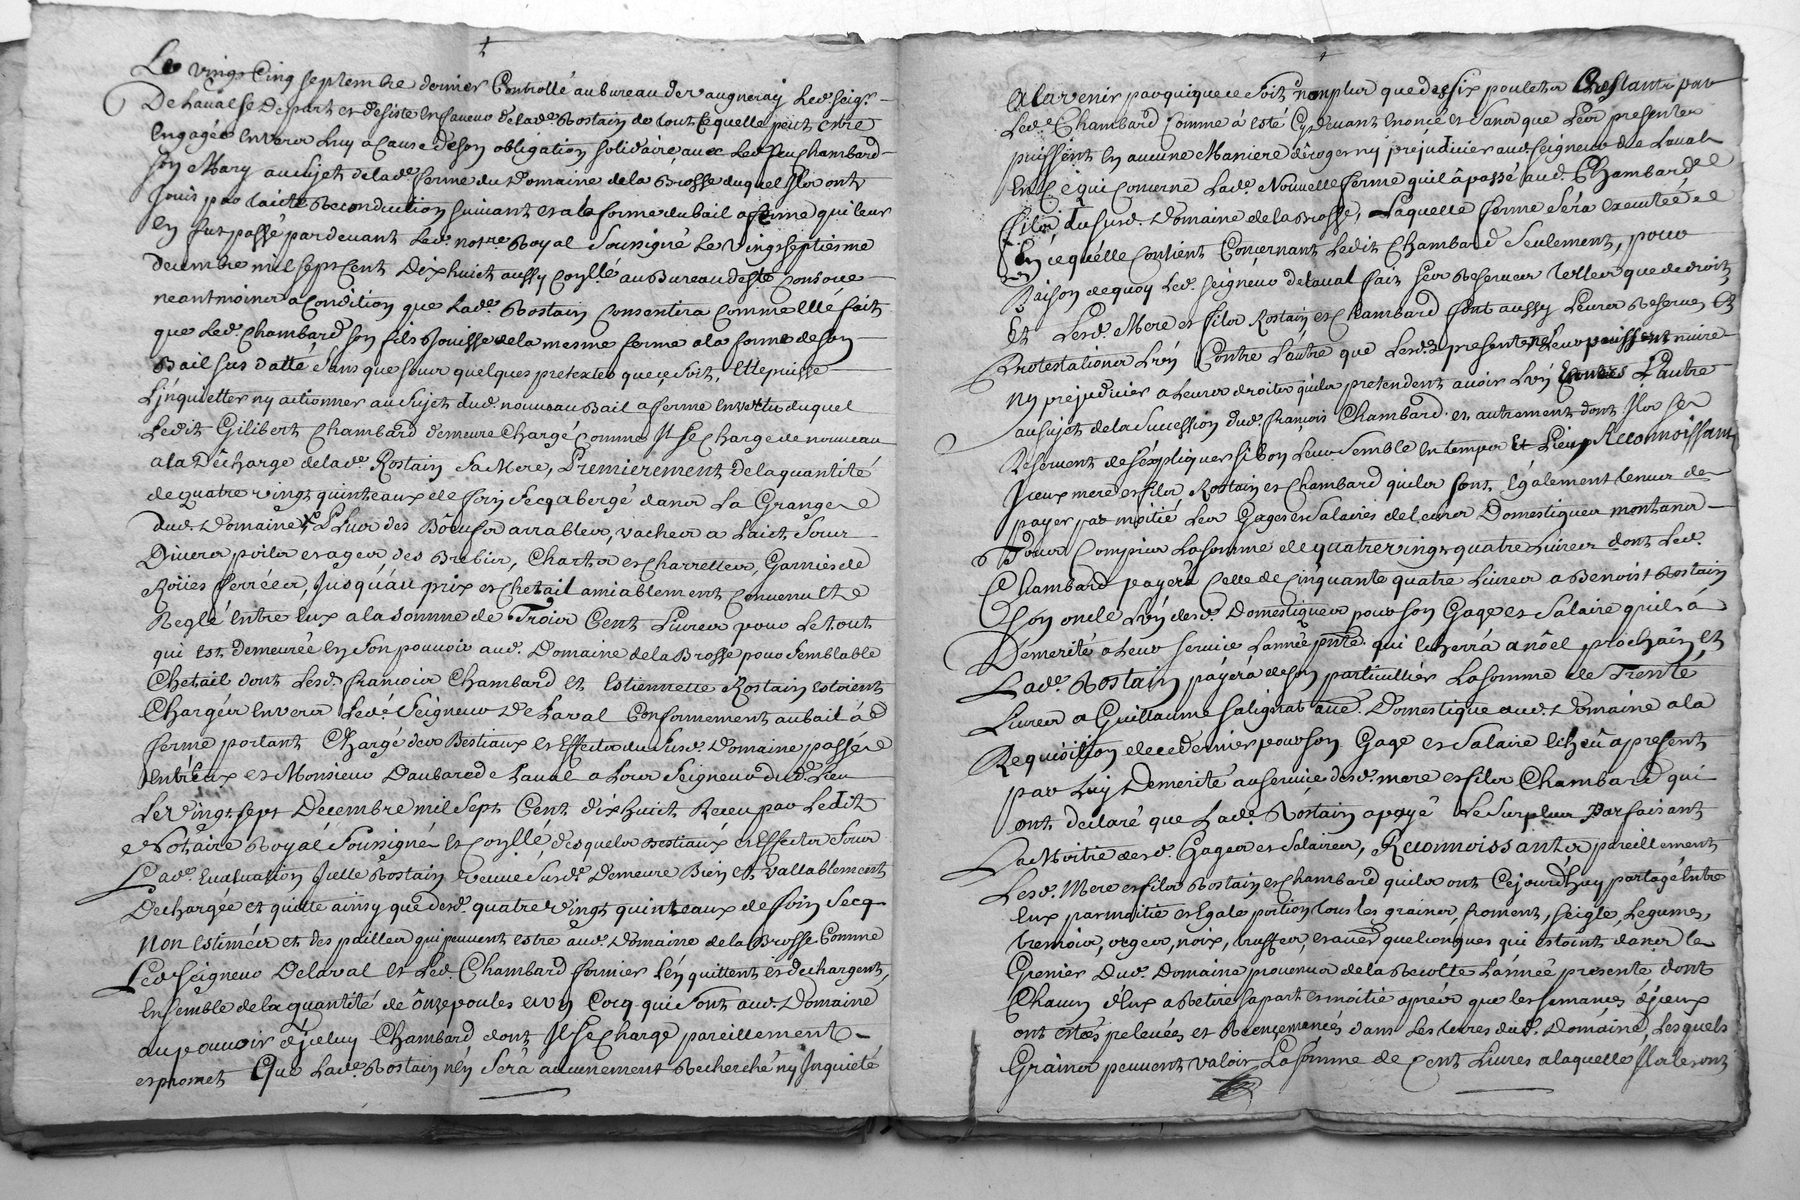 Le vingt Cinq septembre dernier Controllé au bureau de vaugneray Led. seigr.
De Laval se Depart et désiste en faveur de lad.e Rostain de tout ce quelle peut etre
Engagée envers Luy a Cause de son obligation solidaire avec Led. feu Chambard
son Mary au sujet de lad.e ferme du Domaine de la Brosse duquel Ils ont
Jouis par taicte Reconduction suivant et a la forme du bail a ferme qui leur
en fut passé pardevant Led. not.re Royal Soussigné Le Vingt septieme
decembre mil sept Cent Dix huict aussy coñllé au Bureau de S.te Consorce
neantmoins a Condition que Lad.e Rostain Consentira comme Elle fait
que Led. Chambard son fils Jouisse de la mesme ferme a la forme de son
Bail sus datté sans que sous quelques pretextes que ce soit, Elle puisse
L'inquietter ny actionner au sujet dud. nouveau Bail a ferme en vertu duquel
Ledit Gilibert Chambard demeure Chargé comme Il se charge de nouveau
a la Décharge de lad.e Rostain Sa Mere, Premierement de la quantité
de quatre vingt quinteaux de foin secq abergé dans La Grange
dud. Domaine Plus des Boeufs arrables, vaches a Laict sous
Divers poils et ages, des Brebis, Chart et charrettes, Garnies de
Roües ferrées, Jusqu'au prix et chetail amiablement convenu Et
Reglé entre Eux a la somme de Trois Cent Livres pour Le tout
qui est demeurée en Son pouvoir aud. Domaine de la Brosse pour semblable
Chetail dont Lesd. francois Chambard et Estiennette Rostain estoient
Chargés envers Led. Seigneur De Laval Conformement au bail à
ferme portant Chargé des Bestiaux et Effects du susd. Domaine passée
entr'eux et Monsieur Daubarede Laval alors Seigneur dud. Lieu
Le Vingt sept Décembre mil sept Cent dix huict Receu par Ledit
Notaire Royal Soussigné et coñllé, desquels Bestiaux et Effects sous
Lad.e Evaluation Icelle Rostain veuve susd.e Demeure Bien et vallablement
Dechargée et quitte ainsy que desd. quatre Vingt quinteaux de foin secq
non estimés et des pailles qui peuvent estre aud. Domaine de la Brosse Comme
Led. Seigneur Delaval et Led. Chambard fermier L'en quittent et dechargent,
Ensemble de la quantité de ônze poules et un Cocq qui sont aud. Domaine
au pouvoir d'jceluy Chambard dont Il se Charge pareillement
et promet Que Lad.e Rostain n'en Sera aucunement Recherché ny Inquieté
A l'avenir par qui que ce soit non plus que des six poulets Restants par
Led.e Chambard Comme à esté Cydevant enoncé et sans que Les presentes
puissent en aucune Maniere déroger ny préjudicier aud. seigneur De Laval
En Ce qui Concerne Lad.e Nouvelle ferme quil à passé aud. Chambard
fils du susd. Domaine de la Brosse, Laquelle ferme sera executée
En ce quélle Contient Concernant Ledit Chambard Seulement, pour
Raison de quoy Led. Seigneur de Laval fait ses Reserves telles que de droit
Et Lesd. Mere et fils Rostain et Chambard font aussy Leurs Reserves Et
Protestations L'un Contre L'autre que Lesd. presentes ne Leur puissent nuire
ny préjudicier a Leurs droits quils pretendent avoir L'un Envers L'autre
au sujet de la Succession dud. francois Chambard et autrement dont Ils se
Reservent de s'expliquer si bon Leur Semble En temps et Lieu, Reconnoissant
Iceux mere et fils Rostain et Chambard quils sont Également tenus de
payer par moitié Les Gages et Salaires de Leurs Domestiques montans
Tous Compris La somme de quatre vingt quatre Livres dont Led.
Chambard payera Celle de Cinquante quatre Livres a Benoist Rostain
Son oncle L'un desd. Domestiques pour son Gage et Salaire quil à
Démerité a Leur service L'année pnte. qui Echerrà a nöel prochain, Et
Lad.e Rostain payera de son particullier La somme de Trente
Livres a Guillaume Salignat aue. Domestique aud. Domaine a la
Requisition de ce dernier pour son Gage et Salaire Echeû a present
par Luy Demerité au service desd. mere et fils Chambard qui
ont declaré que Lad.e Rostain a payé Le surplus Parfaisant
La Moitié desd. Gages et Salaires, Reconnoissants pareillement
Lesd. Mere et fils Rostain et Chambard quils ont Cejourd'huy partagé entre
Eux par moitié et Egale portion tous les grains, froment, seigle, Legumes,
tremois, orges, noix, truffes, et autres quelconques qui estoint dans le
Grenier Dud. Domaine provenus de la Recolte L'année presente dont
Chacun d'Eux a Retiré sa part et moitié aprés que les semances d'jceux
ont estées pelevées et Rensemancés dans Les terres dud. Domaine, Lesquels
Grains peuvent valoir La somme de Cent Livres a laquelle Ils les ont